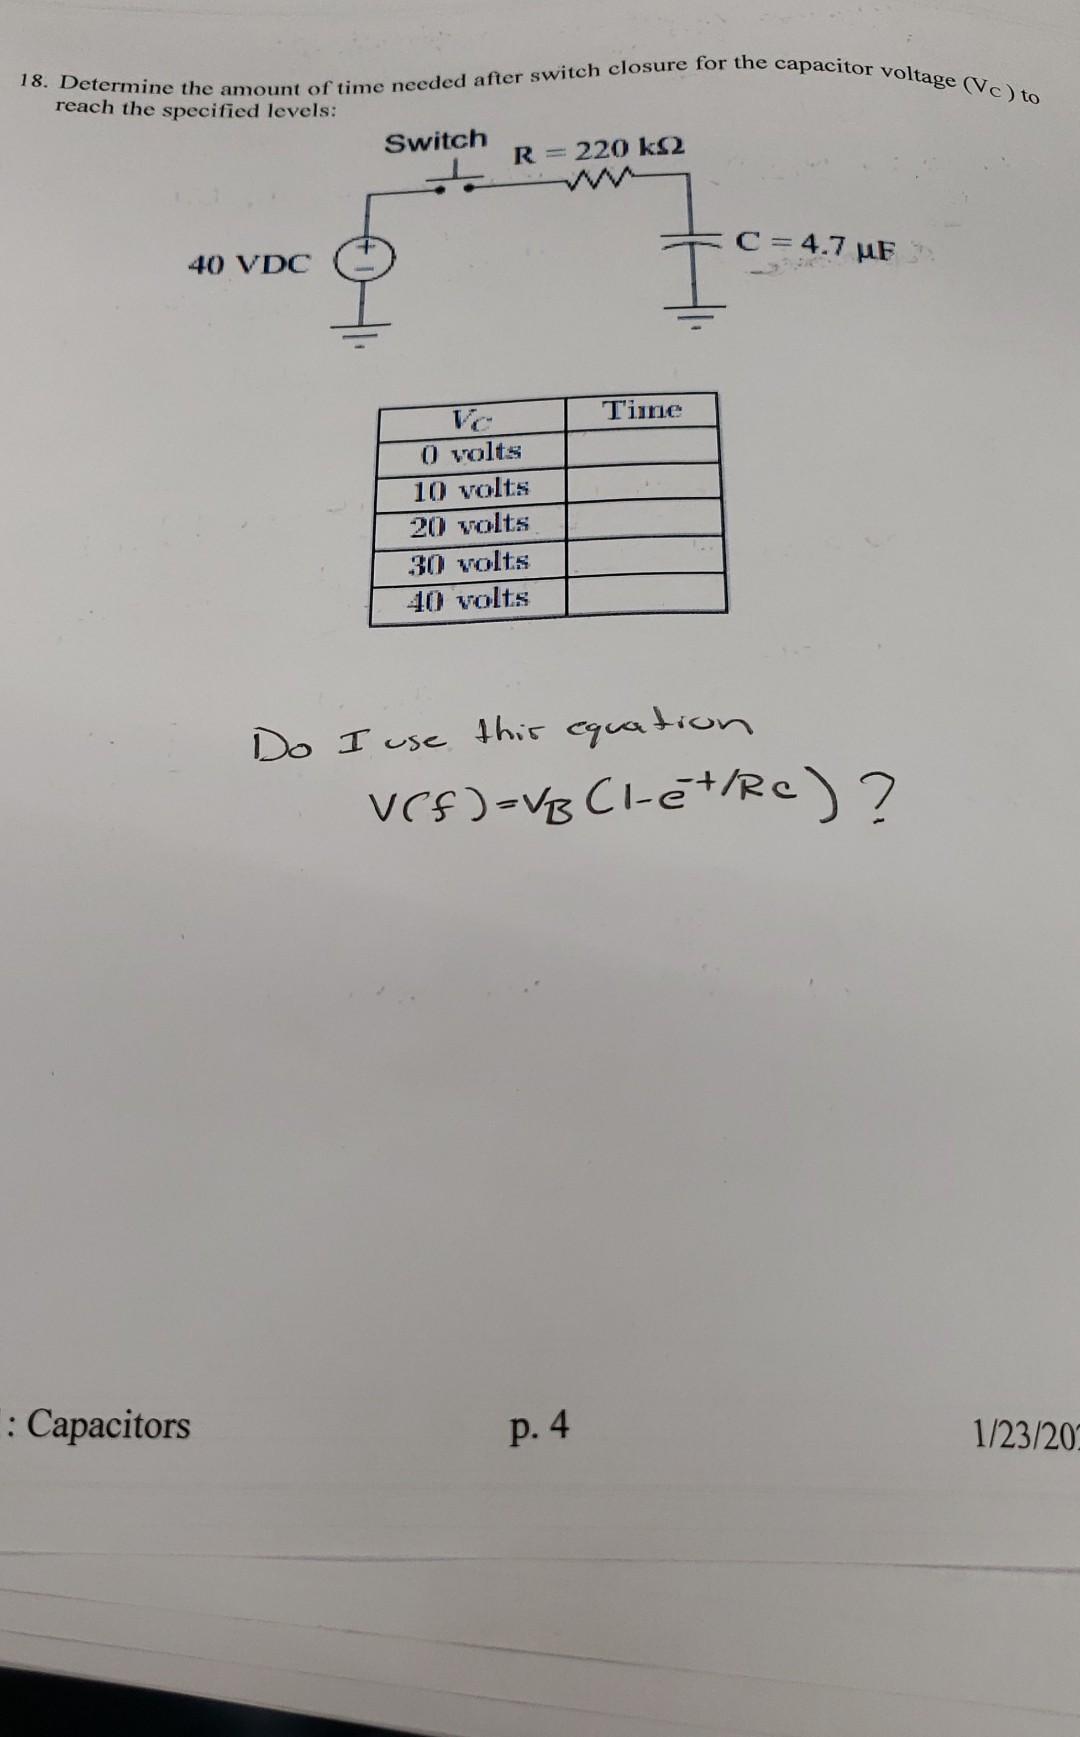 18. Determine the amount of time needed after switch closure for the capacitor voltage (VC) to
reach the specified levels:
Switch
R = 220 kΩ
40 VDC
+
−
C = 4.7 µF
VC Time
0 volts
10 volts
20 volts
30 volts
40 volts
Do I use this equation
V(f)=VB (1-e^-t/RC) ?
: Capacitors p. 4 1/23/202